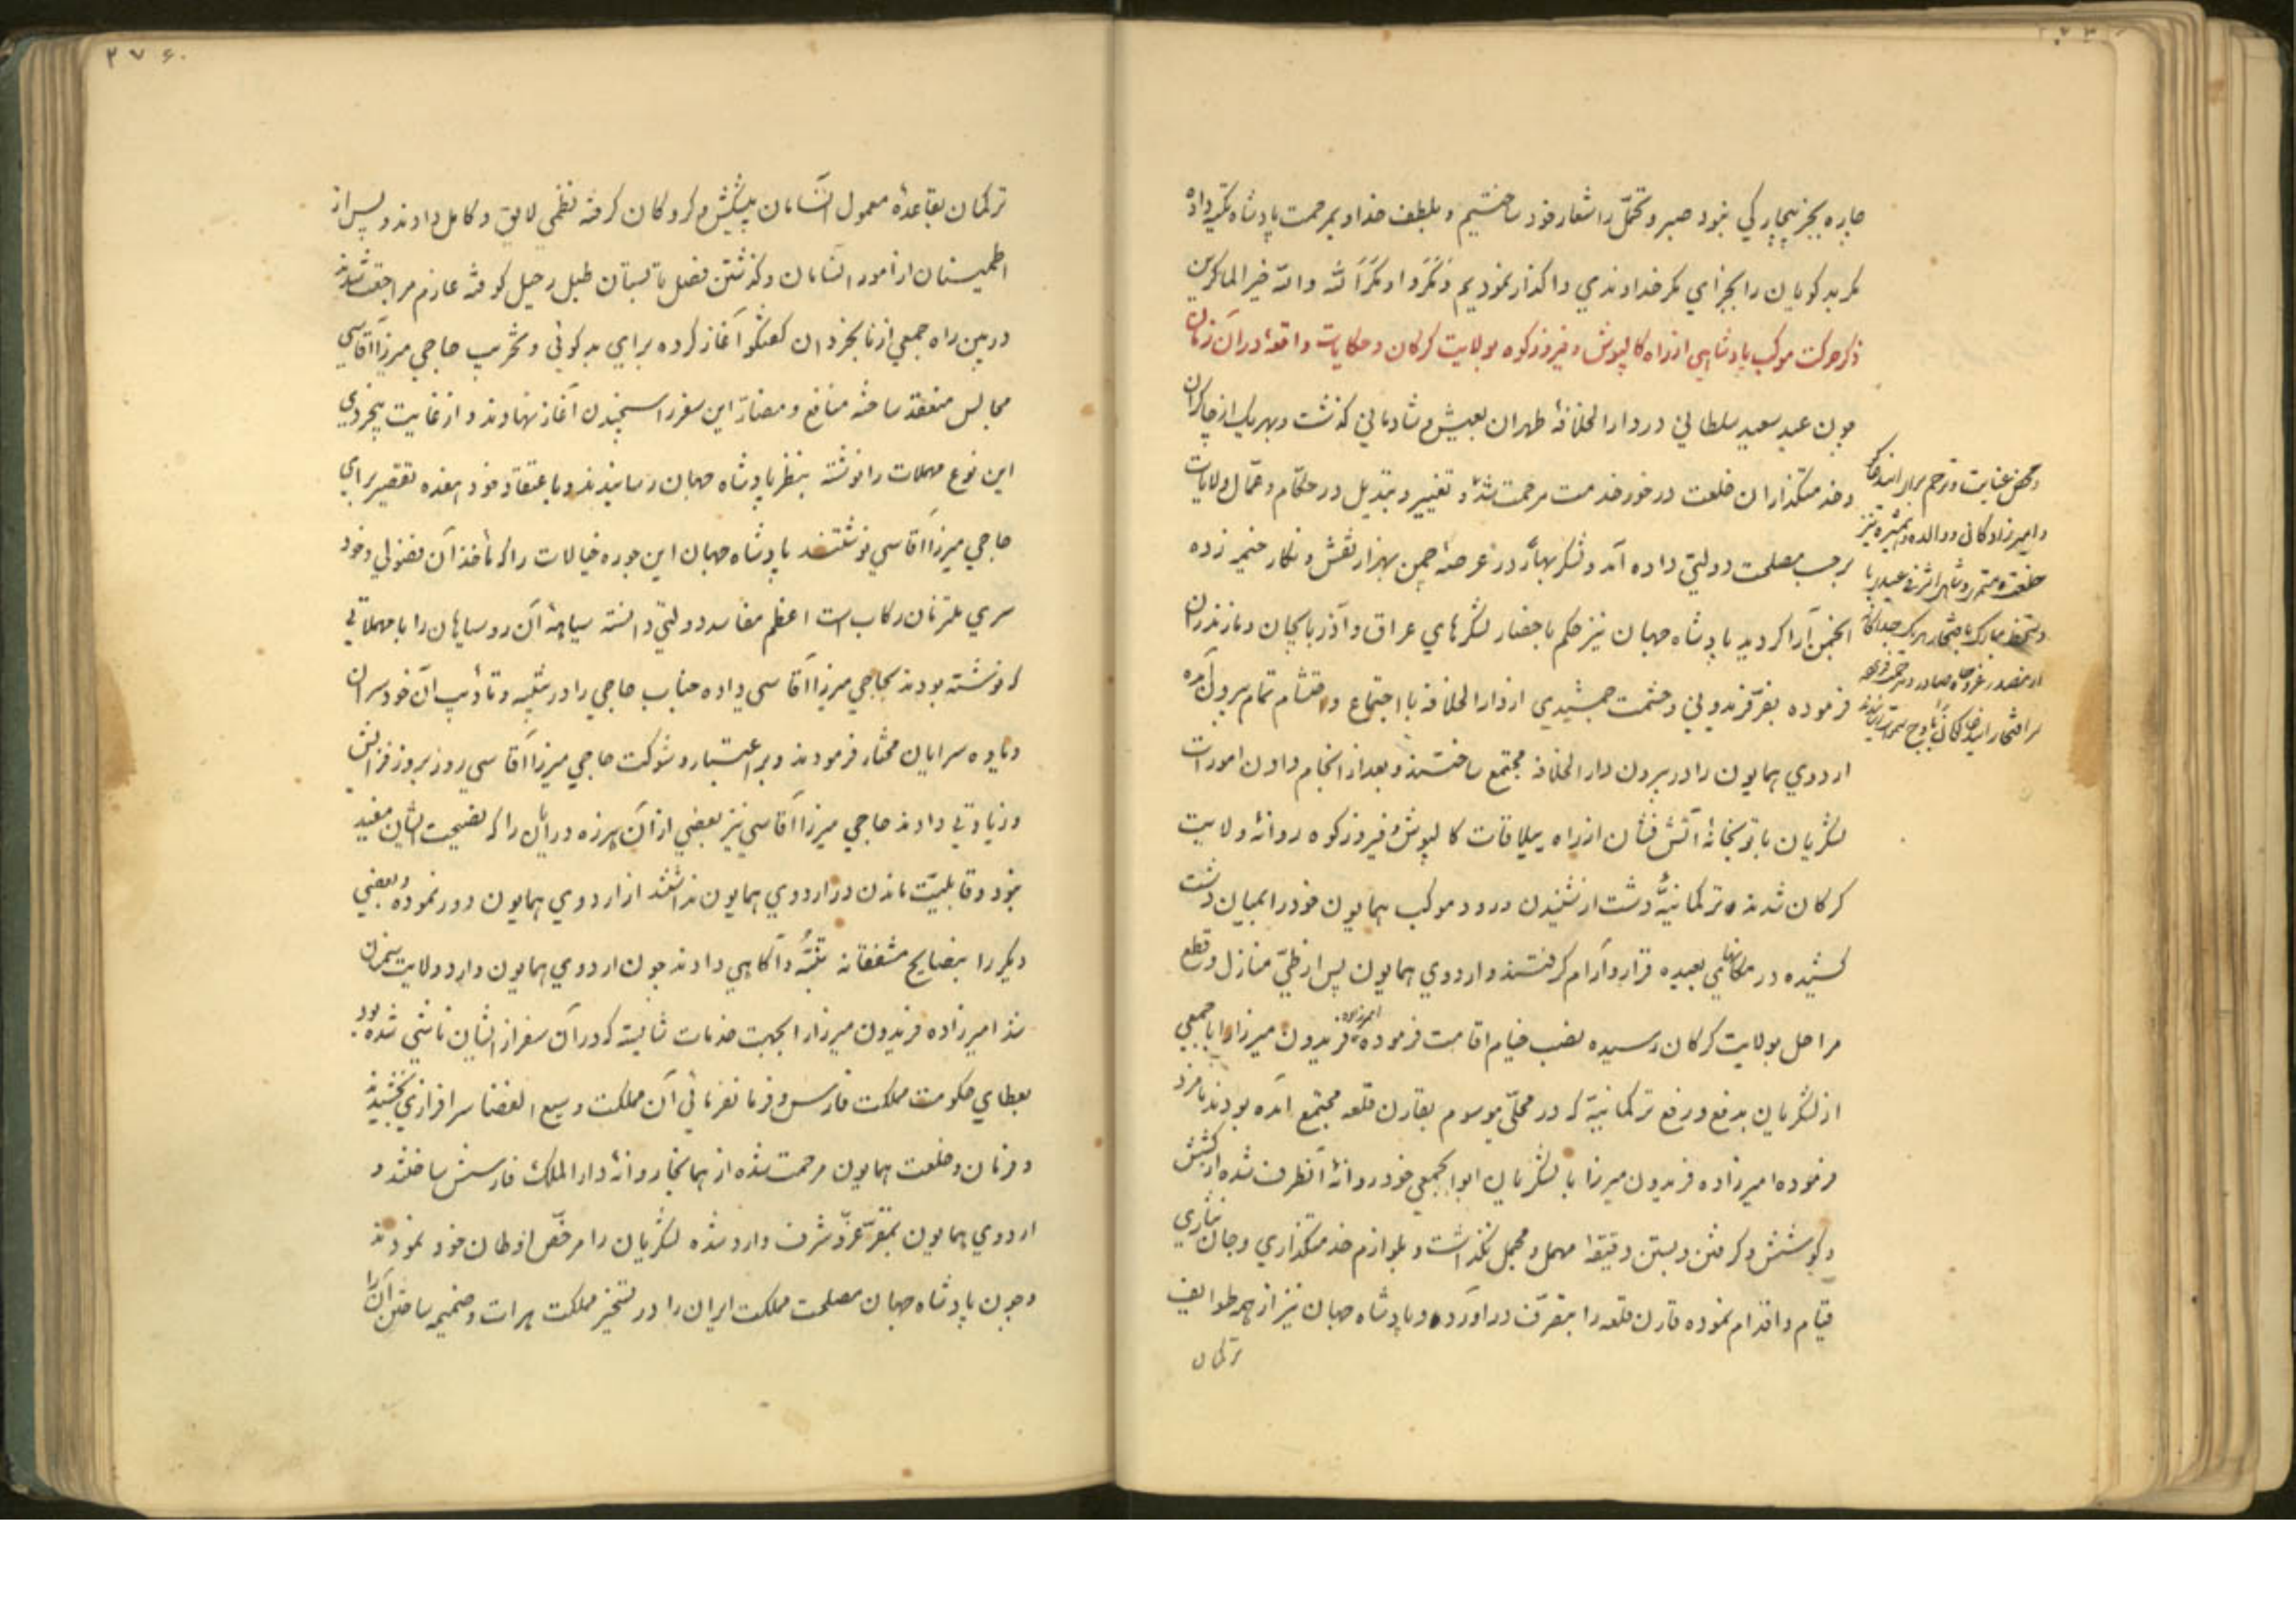 چاره بجز بیچارکی نبود صبر و تحمّل را شعار خود ساختیم و بلطف خدا و بمرحمت پادشاه تکیه داده
مکر بدکویان را بجزای مکر خداوندی واکذار نمودیم وَمَکَرُوا وَمَکَرَ الله والله خیر الماکرین
ذکر حرکت موکب پادشاهی از راه کالپوش و فیروزکوه بولایت کرکان و حکایات واقعهٔ در آن زمان
چون عید سعید سلطانی در دار الخلافهٔ طهران بعیش و شادمانی کذشت و بهر یک از چاکران
و خدمتکذاران خلعت در خور خدمت مرحمت شد و تغییر و تبدیل در حکّام و عمّال ولایات
برحسب مصلحت دولتی داده آمد و لشکر بهار در عرصهٔ چمن بهزار نقش و نکار خیمه زده
انجمن آرا کردید پادشاه جهان نیز حکم باحضار لشکرهای عراق و آذربایجان و مازندران
فرموده بفرّ فریدونی و حشمت جمشیدی از دار الخلافه با اجتماع و احتشام تمام بیرون آمده
اردوی همایون را در بیرون دار الخلافه مجتمع ساختند و بعد از انجام دادن امورات
لشکریان با توپخانهٔ آتش فشان از راه ییلاقات کالپوش و فیروزکوه روانهٔ ولایت
کرکان شدند ترکمانیّهٔ دشت از شنیدن ورود موکب همایون خود را بمیان دشت
کشیده در مکانهای بعیده قرار و آرام کرفتند و اردوی همایون پس از طیّ منازل و قطع
مراحل بولایت کرکان رسیده نصب خیام اقامت فرموده امیرزاده فریدون میرزا را با جمعی
از لشکریان بدفع و رفع ترکمانیّه که در محلّی موسوم بقارن قلعه مجتمع آمده بودند نامزد
فرموده امیرزاده فریدون میرزا با لشکریان ابوابجمعی خود روانهٔ آنطرف شده از کشش
و کوشش و کرفتن و بستن دقیقهٔ مهمل و مجمل نکذاشت و بلوازم خدمتکذاری و جان نثاری
قیام و اقدام نموده قارن قلعه را بتصرّف در آورده و پادشاه جهان نیز از همه طوایف
ترکمان
ترکمان بقاعدهٔ معمول السامان پیشکش و کروکان کرفته نظمی لایق و کامل دادند و پس از
اطمینان از امور السامان و کذشتن فصل تابستان طبل رحیل کوفته عازم مراجعت شدند
در بین راه جمعی از نابخردان کفتکو آغاز کرده برای بدکوئی و تخریب حاجی میرزا آقاسی
مجالس منعقد ساخته منافع و مضارّ این سفر را سنجیدن آغاز نهادند و از غایت بیخردی
این نوع مهملات را نوشته بنظر پادشاه جهان رسانیدند و باعتقاد خود هفده تقصیر برای
حاجی میرزا آقاسی نوشتند پادشاه جهان این جوره خیالات را که مأخذ آن فضولی و خود
سری ملتزمان رکاب است اعظم مفاسد دولتی دانسته سیاههٔ آن روسیاهان را با مهملاتی
که نوشته بودند بحاجی میرزا آقاسی داده جناب حاجی را در تنبیه و تأدیب آن خودسران
و یاوه سرایان مختار فرمودند و بر اعتبار و شوکت حاجی میرزا آقاسی روز بروز فزایش
و زیادتی دادند حاجی میرزا آقاسی نیز بعضی از آن هرزه درایان را که نصیحت ایشان مفید
نبود و قابلیّت ماندن در اردوی همایون نداشتند از اردوی همایون دور نموده و بعضی
دیکر را بنصایح مشفقانه تنبّه و آکاهی دادند چون اردوی همایون وارد ولایت سمنان
شد امیرزاده فریدون میرزا را بجهت خدمات شایسته که در آن سفر از ایشان ناشی شده بود
بعطای حکومت مملکت فارس و فرمانفرمائی آن مملکت وسیع الفضا سرافرازی بخشیدند
و فرمان و خلعت همایون مرحمت شده از همانجا روانهٔ دار الملک فارسش ساختند و
اردوی همایون بمقرّ عزّ و شرف وارد شده لشکریان را مرخّص اوطان خود نمودند
و چون پادشاه جهان مصلحت مملکت ایران را در تسخیر مملکت هرات و ضمیمه ساختن آن را